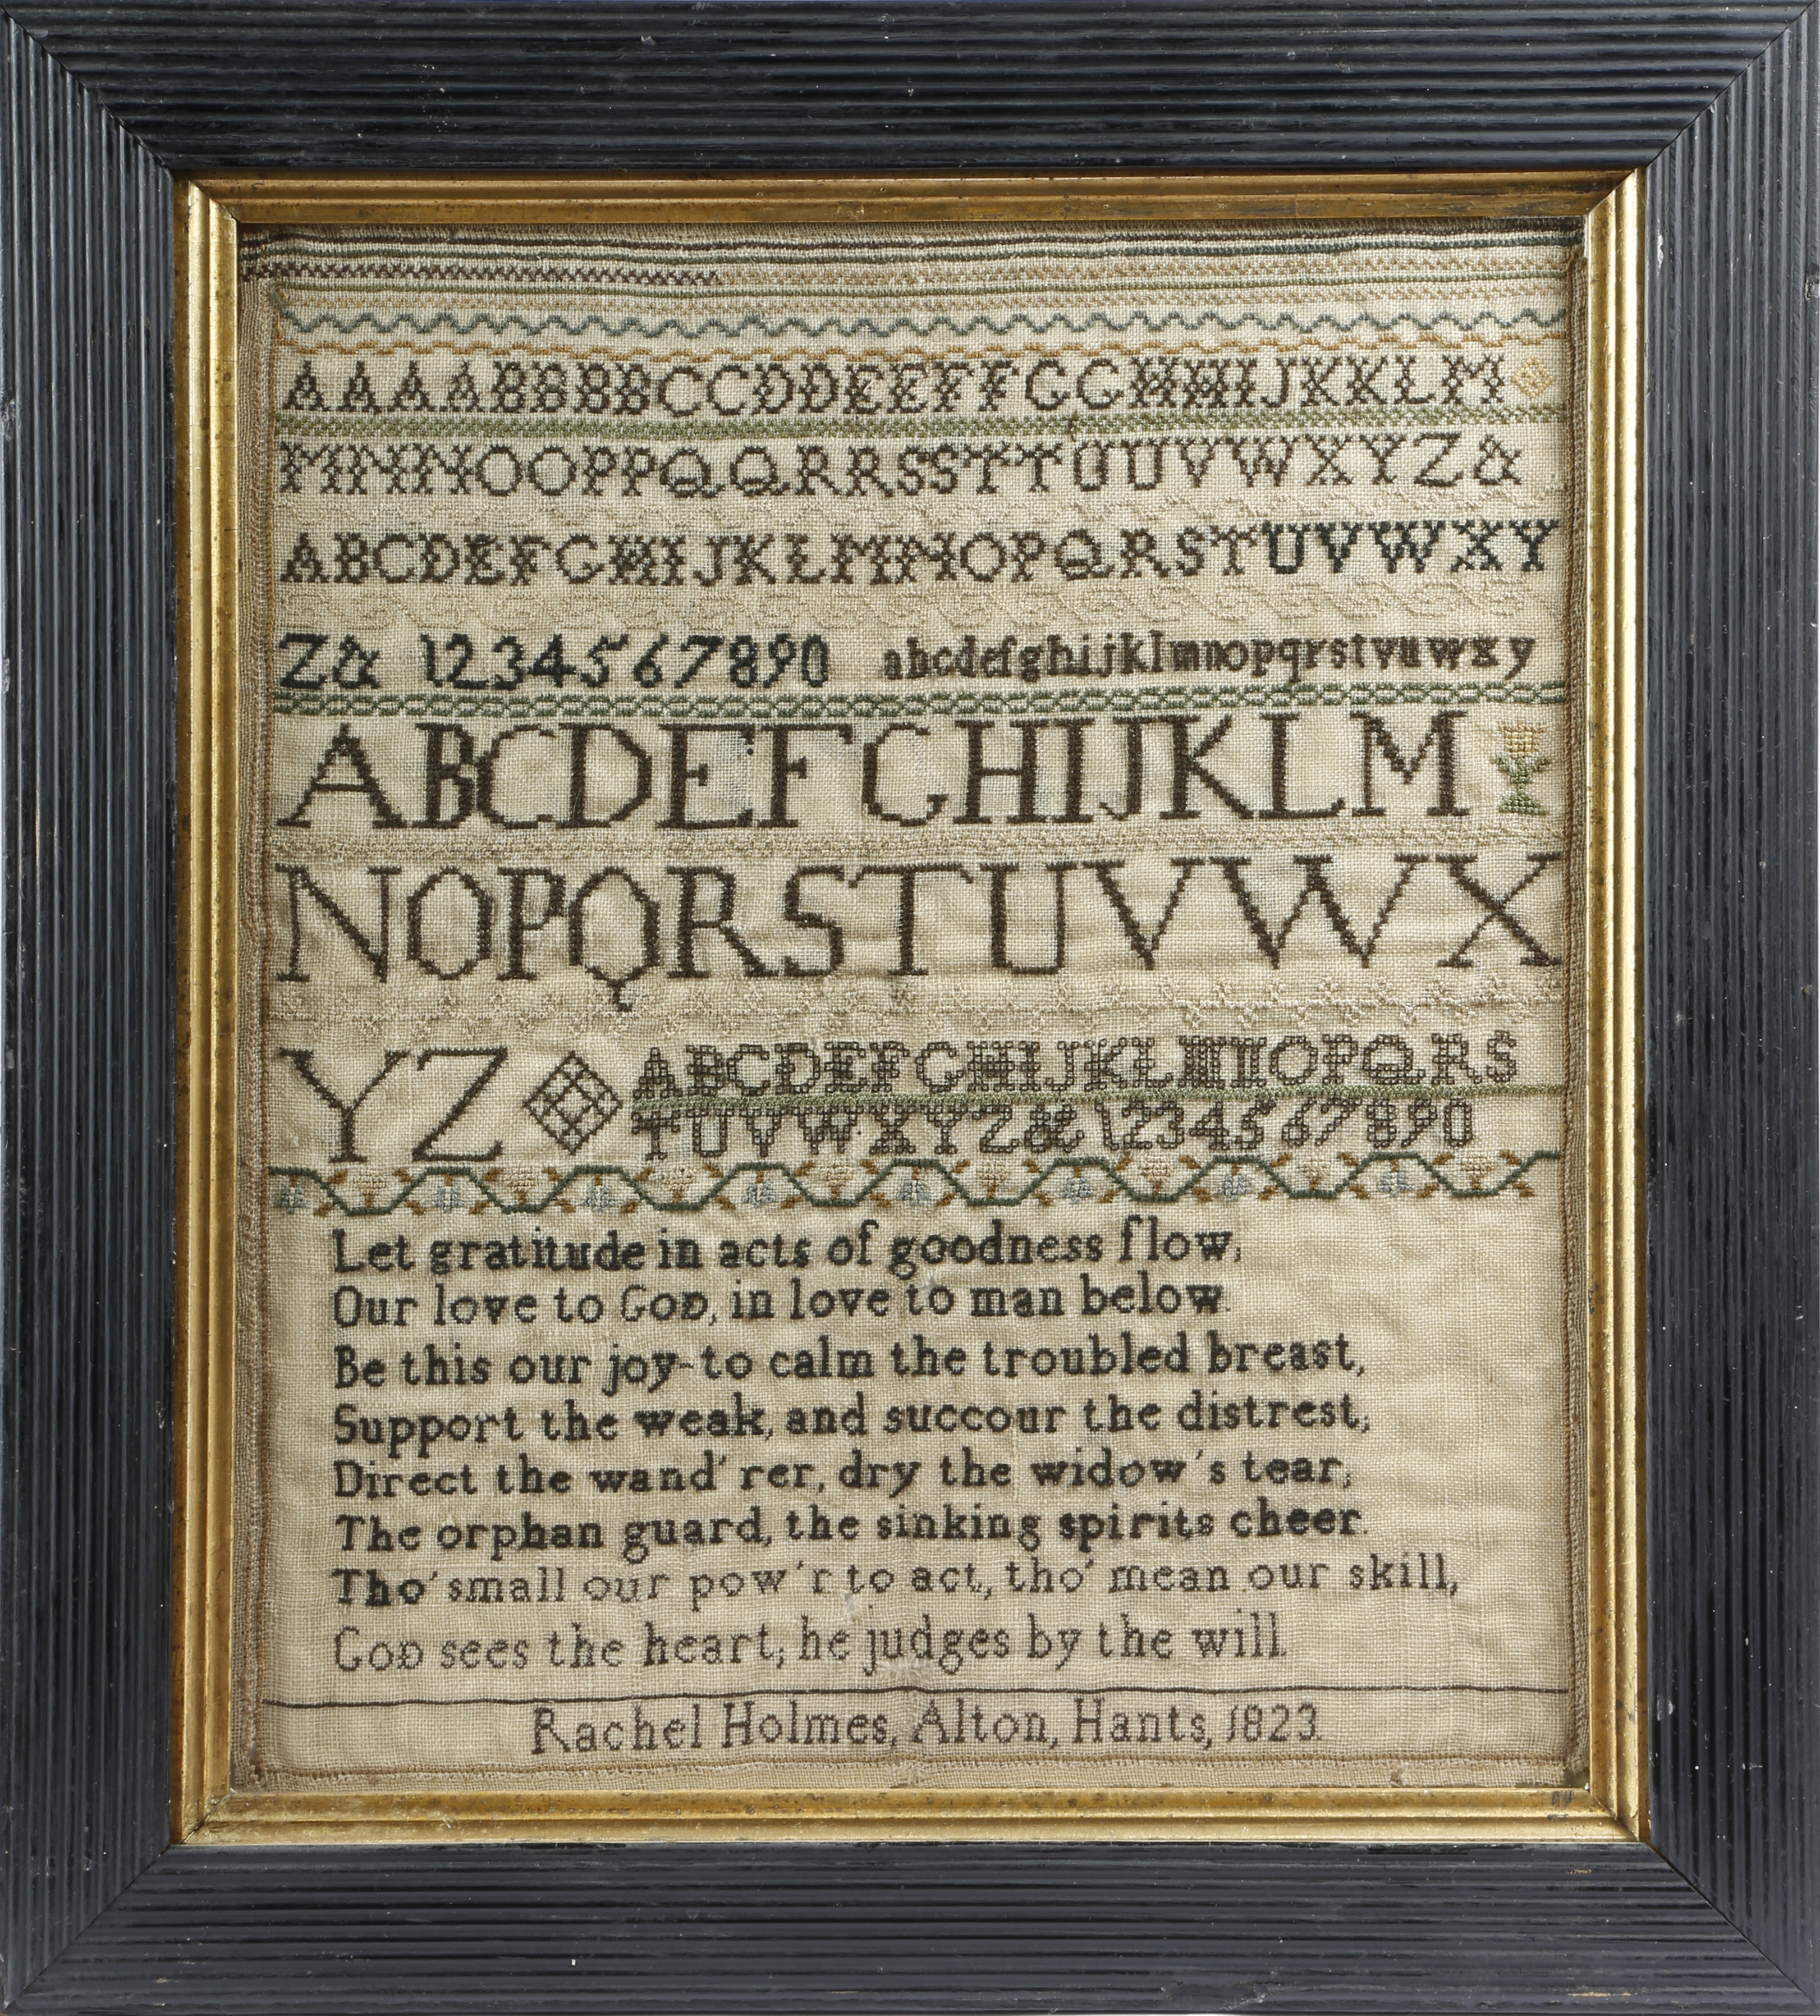 AAAABBBBCCDDEEFFGGHHIJKKLM
MNNNOOPPQQRRSSTTUUVWXYZ&
ABCDEFGHIJKLMNOPQRSTUVWXY
Z& 1234567890 abcdefghijklmnopqrstvuwxy
ABCDEFGHIJKLM
NOPQRSTUVWX
YZ
ABCDEFGHIJKLMNOPQRS
TUVWXYZ&1234567890
Let gratitude in acts of goodness flow,
Our love to GOD, in love to man below.
Be this our joy-to calm the troubled breast,
Support the weak, and succour the distrest;
Direct the wand'rer, dry the widow's tear;
The orphan guard, the sinking spirits cheer.
Tho' small our pow'r to act, tho' mean our skill,
GOD sees the heart; he judges by the will.
Rachel Holmes, Alton, Hants, 1823.